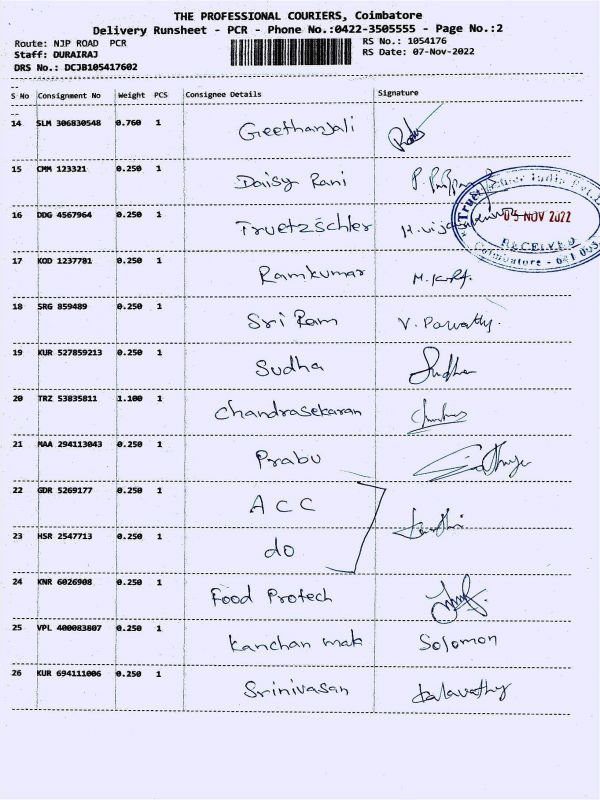 THE PROFESSIONAL COURIERS, Coimbatore
Delivery Runsheet - PCR - Phone No.:0422-3505555 - Page No.:2
Route: NJP ROAD PCR
RS No.: 1054176
Staff: DURAIRAJ
RS Date: 07-Nov-2022
DRS No.: DCJB105417602
S No Consignment No Weight PCS Consignee Details Signature
14 SLM 306830548 0.760 1 Geethanjali
15 CMM 123321 0.250 1 Daisy Rani
16 DDG 4567964 0.250 1 Truetzschler
NOV 2022
RECEIVED
Coimbatore - 641
17 KOD 1237781 0.250 1 Ramkumar
18 SRG 859489 0.250 1 Sri Ram V. Parvathy.
19 KUR 527859213 0.250 1 Sudha Sudha
20 TRZ 53835811 1.100 1 Chandrasekaran
21 MAA 294113043 0.250 1 Prabu
22 GDR 5269177 0.250 1 ACC
23 HSR 2547713 0.250 1 do
24 KNR 6026908 0.250 1 Food Protech
25 VPL 400083807 0.250 1 Kanchan mak Solomon
26 KUR 694111006 0.250 1 Srinivasan Kalavathy